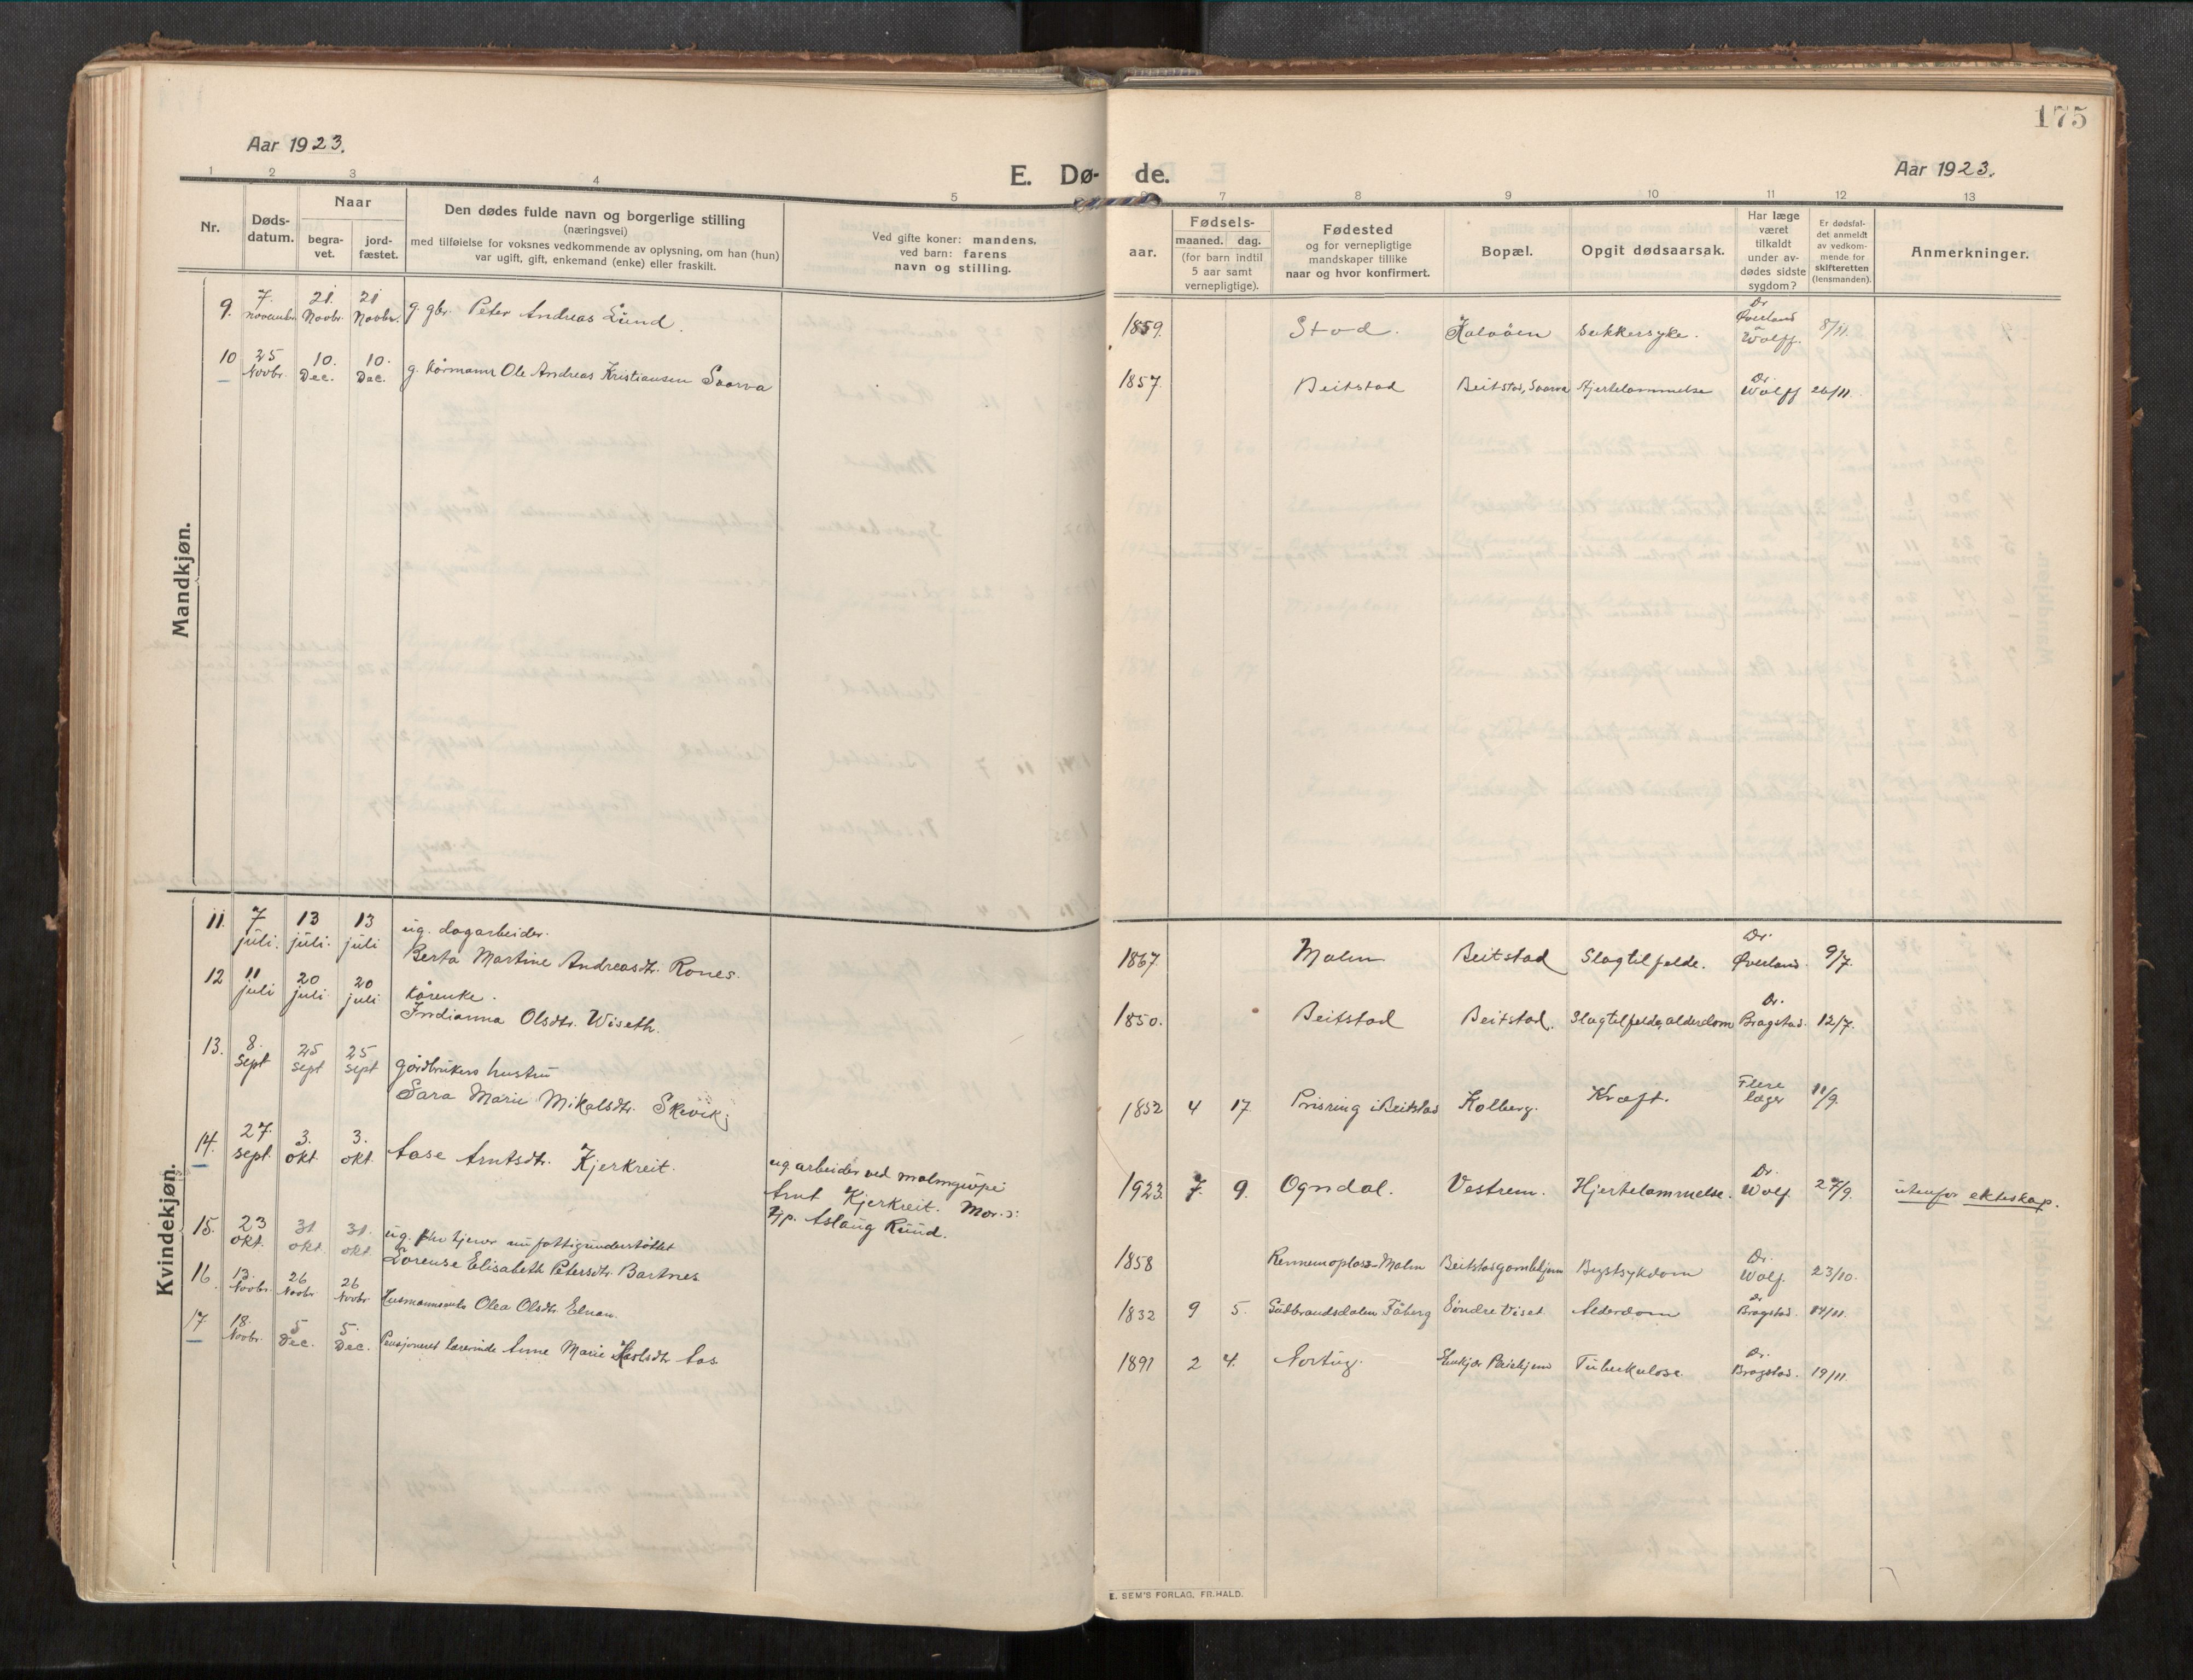 175
Aar 1923.
E. Dø- de.
Aar 1923.
1 2 3 4 5 6 7 8 9 10 11 12 13
Nr.
Døds-
datum.
Naar
begra-
vet.
jord-
fæstet.
Den dødes fulde navn og borgerlige stilling
(næringsvei)
med tilføielse for voksnes vedkommende av oplysning, om han (hun)
var ugift, gift, enkemand (enke) eller fraskilt.
Ved gifte koner: mandens,
ved barn: farens
navn og stilling.
Fødsels-
aar.
maaned. dag.
(for barn indtil
5 aar samt
vernepligtige).
Fødested
og for vernepligtige
mandskaper tillike
naar og hvor konfirmert.
Bopæl.
Opgit dødsaarsak.
Har læge
været
tilkaldt
under av-
dødes sidste
sygdom?
Er dødsfal-
det anmeldt
av vedkom-
mende for
skifteretten
(lensmanden).
Anmerkninger.
Mandkjøn.
9. 7. novembr. 21. Novbr. 21 Novbr. g. gbr. Peter Andreas Lund. 1859. Stod. Kalvöen Sukkersyke. Dr Øverland Wolff. 8/11.
10 25 Novbr. 10. Dec. 10. Dec. g. kårmann Ole Andreas Kristiansen Saarva 1857. Beitstad Beitstad, Saarva Hjertelammelse Dr. Wolff 26/11.
Kvindekjøn.
11. 7 juli. 13 juli. 13 juli ug. dagarbeider.
Berta Martine Andreasdtr. Rones. 1867. Malm Beitstad Slagtilfelde. Dr. Øverland. 9/7.
12 11 juli 20 juli 20 juli kårenke.
Indianna Olsdtr. Wiseth. 1850. Beitstad Beitstad. Slagtilfelde, alderdom Dr. Bragstad. 12/7.
13. 8. Sept 25 Sept 25 Sept gårdbrukers hustru
Sara Marie Mikalsdtr. Skevik 1852 4 17. Prisring i Beitstad Kolberg. Kræft. Flere læger 11/9.
14. 27 Sept. 3. okt. 3. okt. Aase Arntsdtr. Kjerkreit.
ug arbeider ved malmgrupe
Arnt Kjerkreit. Mor:
Pp. Aslaug Ruud.
1923. 7. 9. Ogndal. Vestrem. Hjertelammelse. Dr. Wolf. 27/9. utenfor ekteskap.
15. 23 okt. 31. okt. 31. okt. ug. fhv tjener nu fattigunderstøttet
Lorense Elisabeth Petersdtr. Bartnes 1858 Rennemoplass-Malm Beitstadgamlehjem Brystsykdom Dr. Wolf. 23/10.
16 13. Novbr. 26 Novbr 26 Novbr Husmannsenke Olea Olsdtr. Elnan. 1832 9 5. Gudbrandsdalen Fåberg Søndre Viset Alderdom Dr Bragstad. 14/11.
17 18. Novbr. 5 Dec. 5. Dec. Pensjonert lærerinde Anne Marie Karlsdtr. Aas 1891 2 4. Nortug. Stenkjær Pleiehjem Tuberkulose. Dr. Bragstad. 19/11.
E. SEM'S FORLAG, FR.HALD.